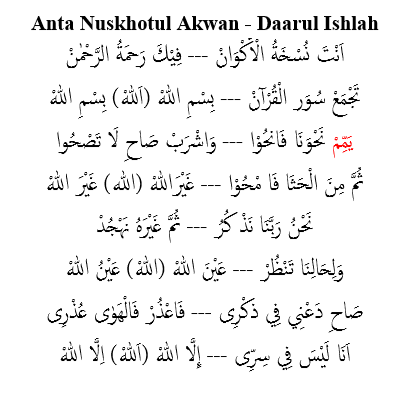 Anta Nuskhotul Akwan - Daarul Ishlah
اَنْتَ نُسْخَةُ الْاَكْوَانْ --- فِيْكَ رَحْمَةُ الرَّحْمٰنْ
تَجْمَعْ سُوَرِ الْقُرْآنْ --- بِسْمِ اللهْ (اَللهْ) بِسْمِ اللهْ
يَمِّمْ نَحْوَنَا فَانْحُوْا --- وَاشْرَبْ صَاحِ لَا تَصْحُوا
ثُمَّ مِنَ الْحَثَا فَا مْحُوْا --- غَيْرَاللهْ (الله) غَيْرَ اللهْ
نَحْنُ رَبَّنَا نَذْكُرُ --- ثُمَّ غَيْرَهُ نَهْجُدْ
وَلِحَالِنَا تَنْظُرْ --- عَيْنَ اللهْ (اللهْ) عَيْنُ اللهْ
صَاحِ دَعْنِي فِي ذَكْرِى --- فَاعْذُرْ فَالْهَوٰى عُذْرِى
اَنَا لَيْسَ فِي سِرِّى --- إِلَّا اللهْ (اَللهْ) اِلَّا اللهْ